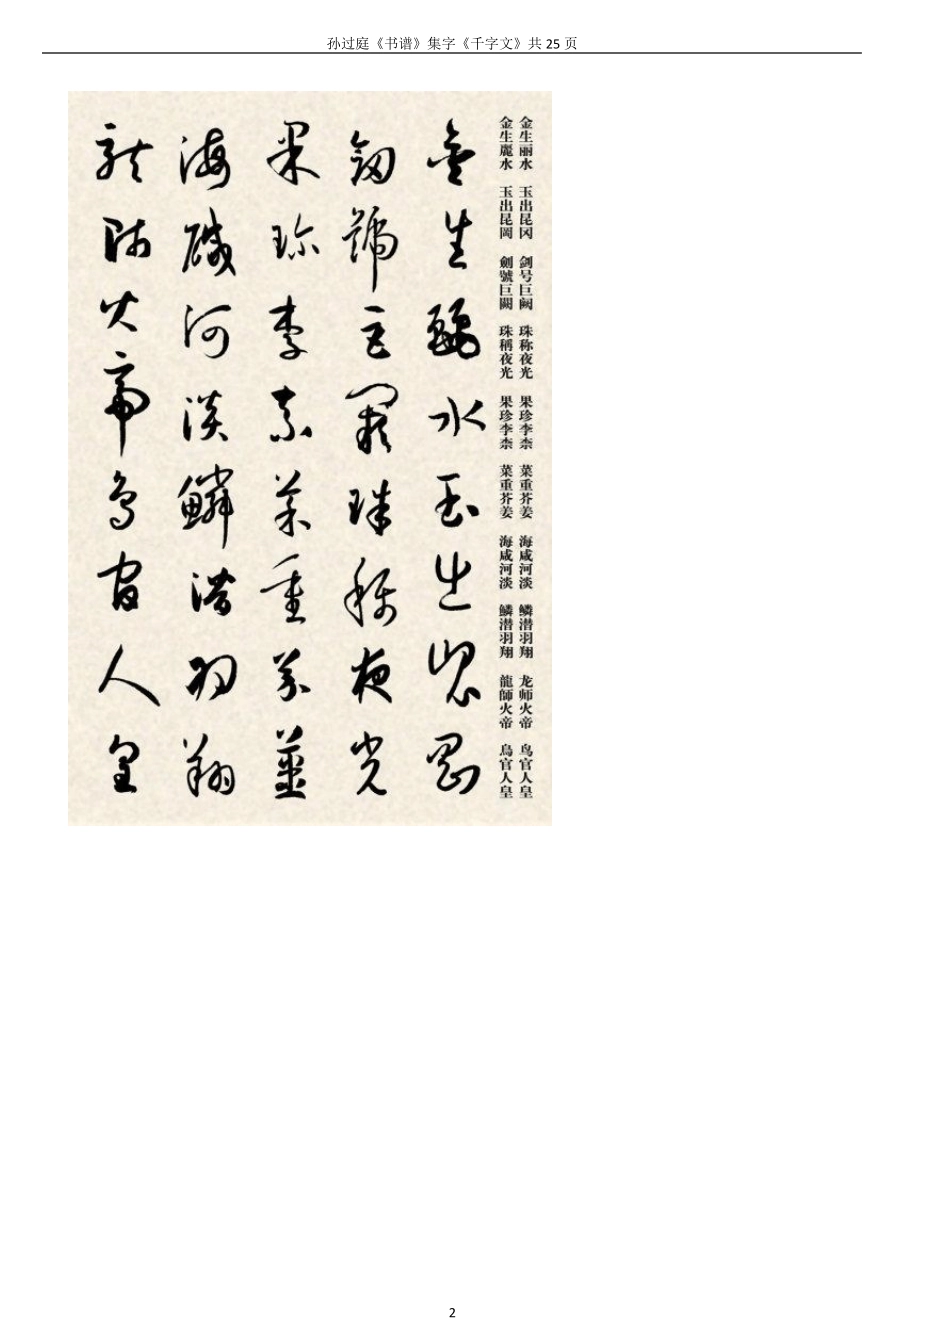 孙过庭《书谱》集字《千字文》共 25 页
金生丽水 玉出昆冈 剑号巨阙 珠称夜光 果珍李柰 菜重芥姜 海咸河淡 鳞潜羽翔 龙师火帝 鸟官人皇
金生麗水 玉出昆岡 劍號巨闕 珠稱夜光 果珍李柰 菜重芥姜 海咸河淡 鱗潛羽翔 龍師火帝 鳥官人皇
金生麗水玉出崑岡
劒號巨闕珠稱夜光
果珍李柰菜重芥薑
海鹹河淡鱗潛羽翔
龍師火帝鳥官人皇
2